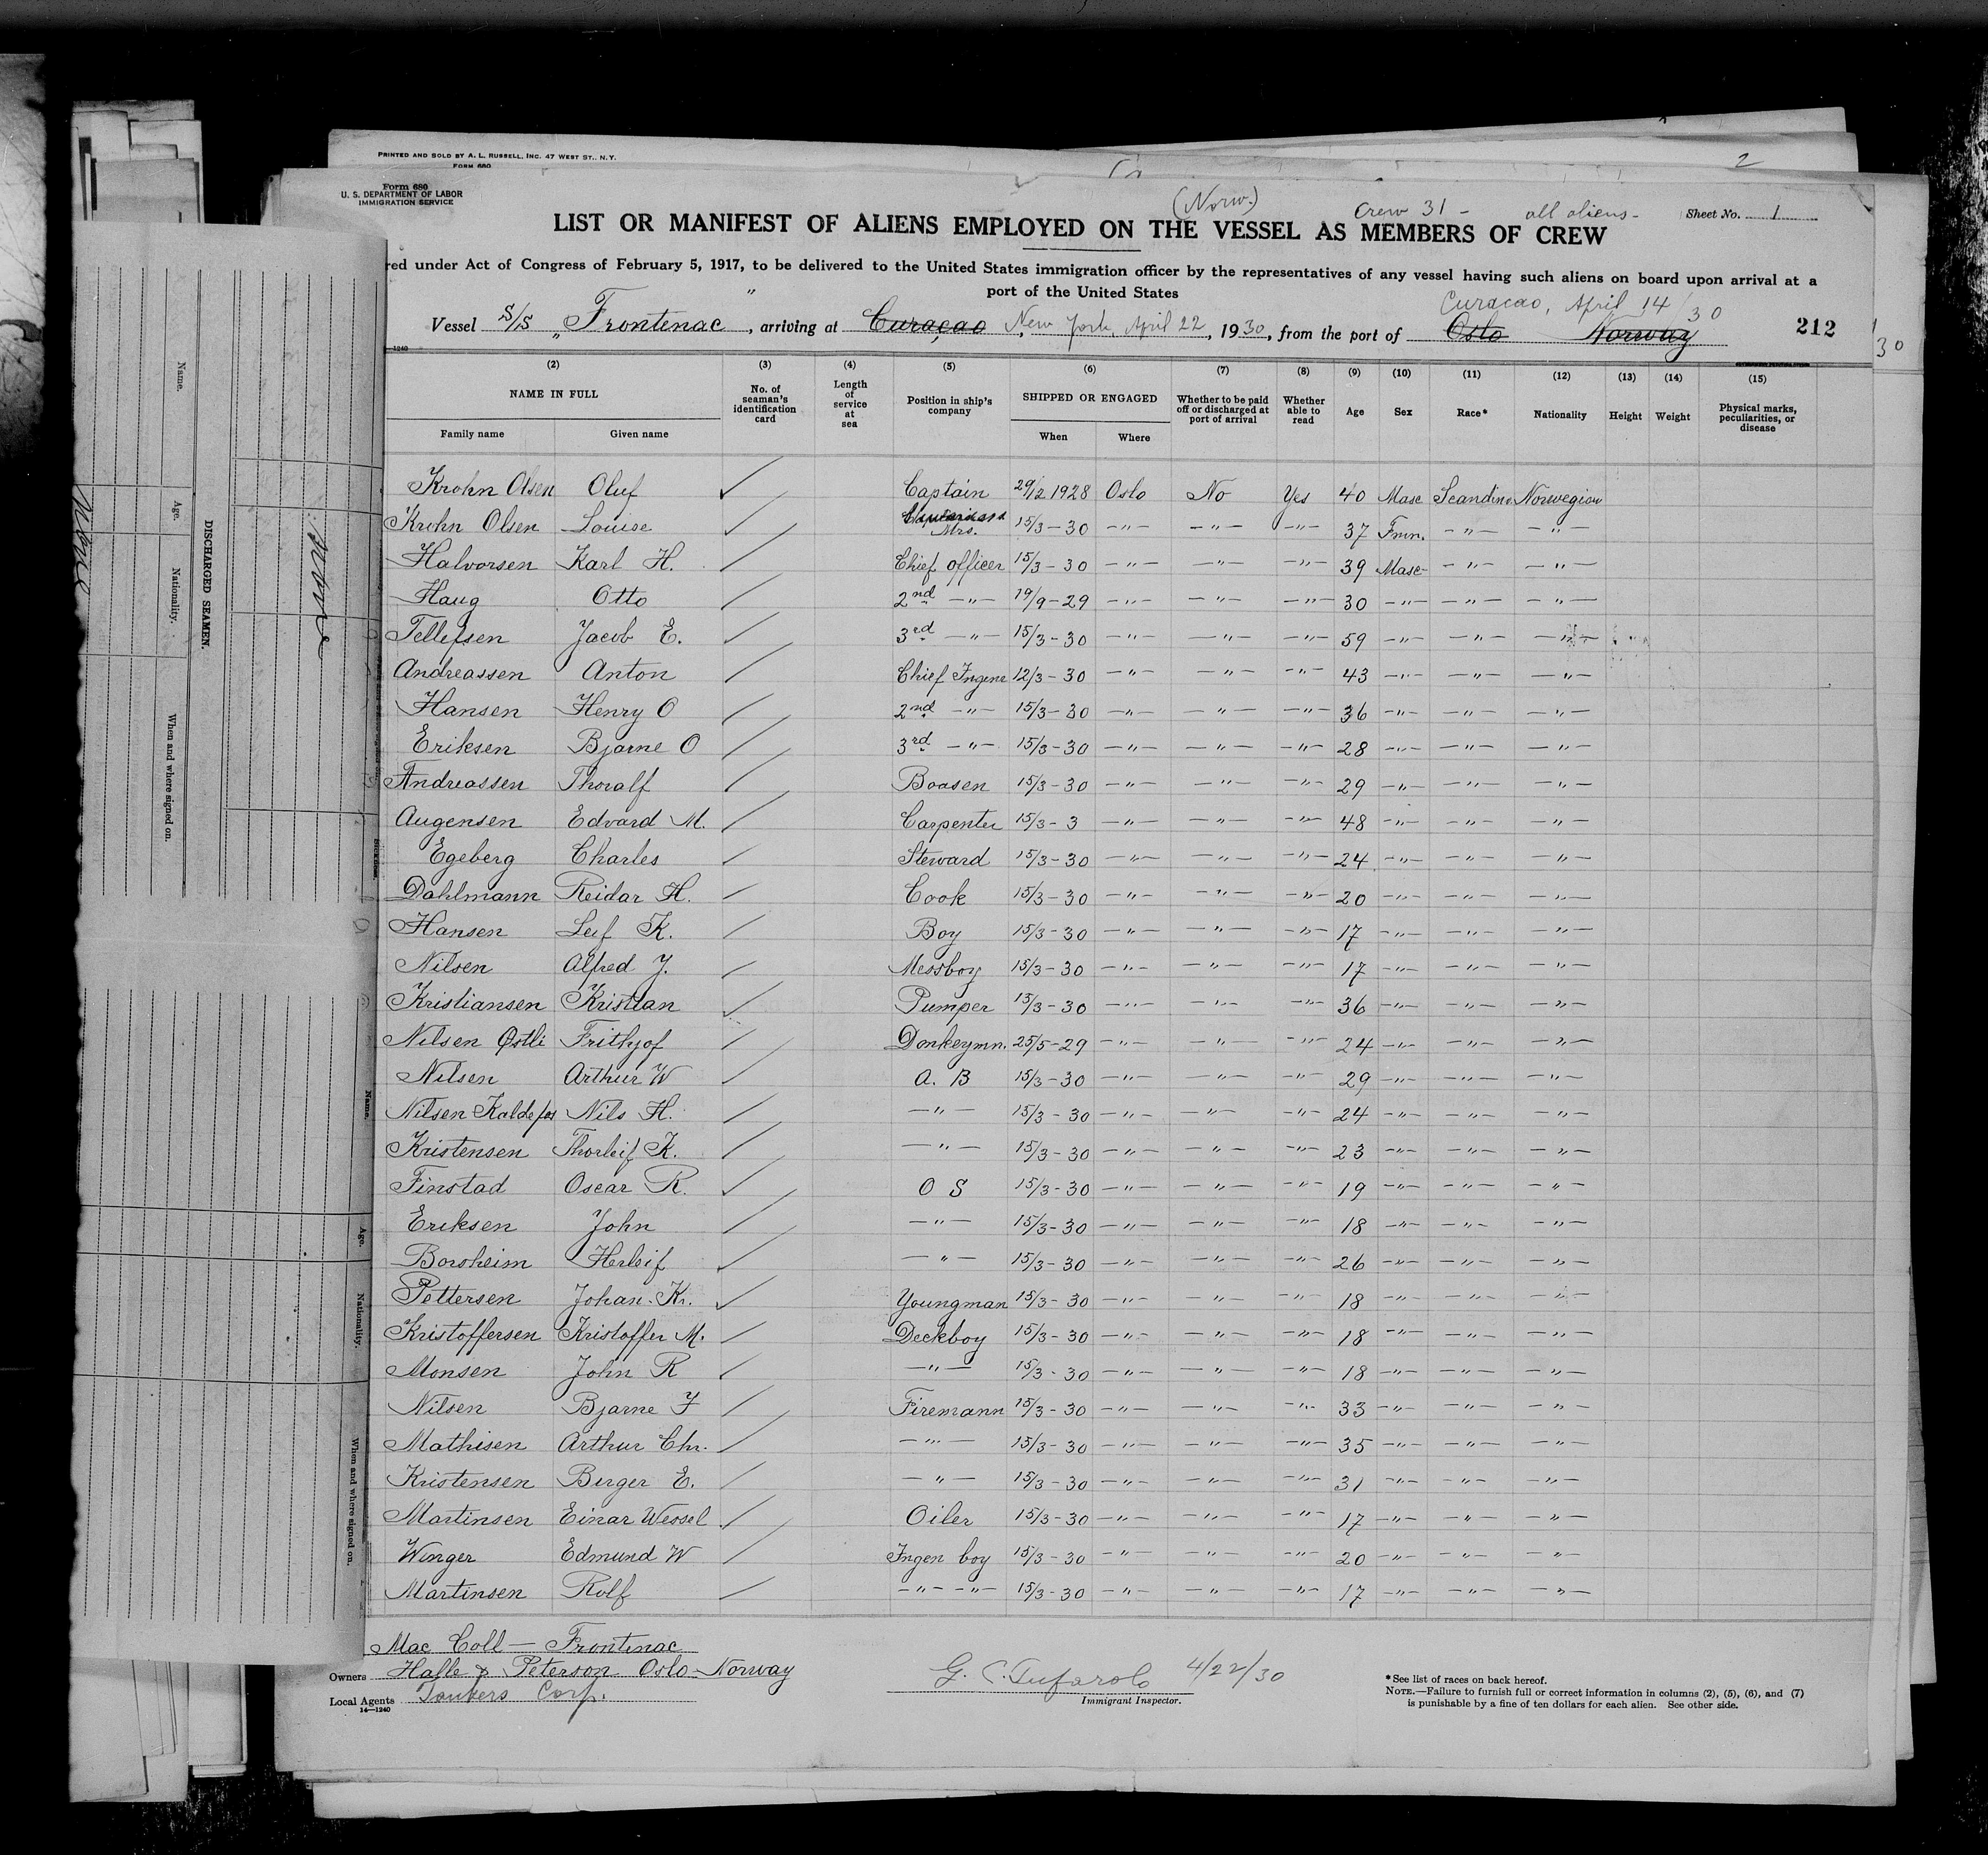 PRINTED AND SOLD BY A. L. RUSSELL, INC. 47 WEST ST., N.Y.
FORM 680
2
Form 680
U. S. DEPARTMENT OF LABOR
IMMIGRATION SERVICE
(Norw.) Crew 31 - all aliens - Sheet No. 1
LIST OR MANIFEST OF ALIENS EMPLOYED ON THE VESSEL AS MEMBERS OF CREW
red under Act of Congress of February 5, 1917, to be delivered to the United States immigration officer by the representatives of any vessel having such aliens on board upon arrival at a
port of the United States
Curacao, April 14/30
Vessel S/S "Frontenac", arriving at Curaçao, New York, April 22, 1930, from the port of Oslo Norway 212
30
1240
(2) (3) (4) (5) (6) (7) (8) (9) (10) (11) (12) (13) (14) (15)
NAME IN FULL No. of seaman's identification card Length of service at sea Position in ship's company SHIPPED OR ENGAGED Whether to be paid off or discharged at port of arrival Whether able to read Age Sex Race* Nationality Height Weight Physical marks, peculiarities, or disease
Family name Given name When Where
Krohn Olsen Oluf Captain 29/12 1928 Oslo No Yes 40 Masc Scandin Norwegian
Krohn Olsen Louise Mrs. 15/3-30 -"- -"- -"- 37 Fmn. -"- -"-
Halvorsen Karl H. Chief officer 15/3-30 -"- -"- -"- 39 Masc -"- -"-
Haug Otto 2nd -"- 19/9-29 -"- -"- -"- 30 -"- -"- -"-
Tellefsen Jacob E. 3rd -"- 15/3-30 -"- -"- -"- 59 -"- -"- -"-
Andreassen Anton Chief Ingene 12/3-30 -"- -"- -"- 43 -"- -"- -"-
Hansen Henry O 2nd -"- 15/3-30 -"- -"- -"- 36 -"- -"- -"-
Eriksen Bjarne O 3rd -"- 15/3-30 -"- -"- -"- 28 -"- -"- -"-
Andreassen Thoralf Boasen 15/3-30 -"- -"- -"- 29 -"- -"- -"-
Augensen Edvard M. Carpenter 15/3-3 -"- -"- -"- 48 -"- -"- -"-
Egeberg Charles Steward 15/3-30 -"- -"- -"- 24 -"- -"- -"-
Dahlmann Reidar H. Cook 15/3-30 -"- -"- -"- 20 -"- -"- -"-
Hansen Leif K. Boy 15/3-30 -"- -"- -"- 17 -"- -"- -"-
Nilsen Alfred J. Messboy 15/3-30 -"- -"- -"- 17 -"- -"- -"-
Kristiansen Kristian Pumper 15/3-30 -"- -"- -"- 36 -"- -"- -"-
Nilsen Østli Frithjof Donkeymn. 25/5-29 -"- -"- -"- 24 -"- -"- -"-
Nilsen Arthur W A. B 15/3-30 -"- -"- -"- 29 -"- -"- -"-
Nilsen Kaldefos Nils H. -"- 15/3-30 -"- -"- -"- 24 -"- -"- -"-
Kristensen Thorleif K. -"- 15/3-30 -"- -"- -"- 23 -"- -"- -"-
Finstad Oscar R. O S 15/3-30 -"- -"- -"- 19 -"- -"- -"-
Eriksen John -"- 15/3-30 -"- -"- -"- 18 -"- -"- -"-
Borsheim Herleif -"- 15/3-30 -"- -"- -"- 26 -"- -"- -"-
Pettersen Johan. Kr. Youngman 15/3-30 -"- -"- -"- 18 -"- -"- -"-
Kristoffersen Kristoffer M. Deckboy 15/3-30 -"- -"- -"- 18 -"- -"- -"-
Monsen John R -"- 15/3-30 -"- -"- -"- 18 -"- -"- -"-
Nilsen Bjarne F Firemann 15/3-30 -"- -"- -"- 33 -"- -"- -"-
Mathisen Arthur Chr. -"- 15/3-30 -"- -"- -"- 35 -"- -"- -"-
Kristensen Birger E. -"- 15/3-30 -"- -"- -"- 31 -"- -"- -"-
Martinsen Einar Wessel Oiler 15/3-30 -"- -"- -"- 17 -"- -"- -"-
Winger Edmund W Ingen boy 15/3-30 -"- -"- -"- 20 -"- -"- -"-
Martinsen Rolf -"- -"- 15/3-30 -"- -"- -"- 17 -"- -"- -"-
Mac Coll - Frontenac
Owners Hafle & Peterson Oslo-Norway
Local Agents Tankers Corp.
14-1240
4/22/30
Immigrant Inspector.
*See list of races on back hereof.
NOTE.—Failure to furnish full or correct information in columns (2), (5), (6), and (7)
is punishable by a fine of ten dollars for each alien. See other side.
DISCHARGED SEAMEN.
Name. Age. Nationality. When and where signed on.
None
Name. Age. Nationality. When and where signed on.